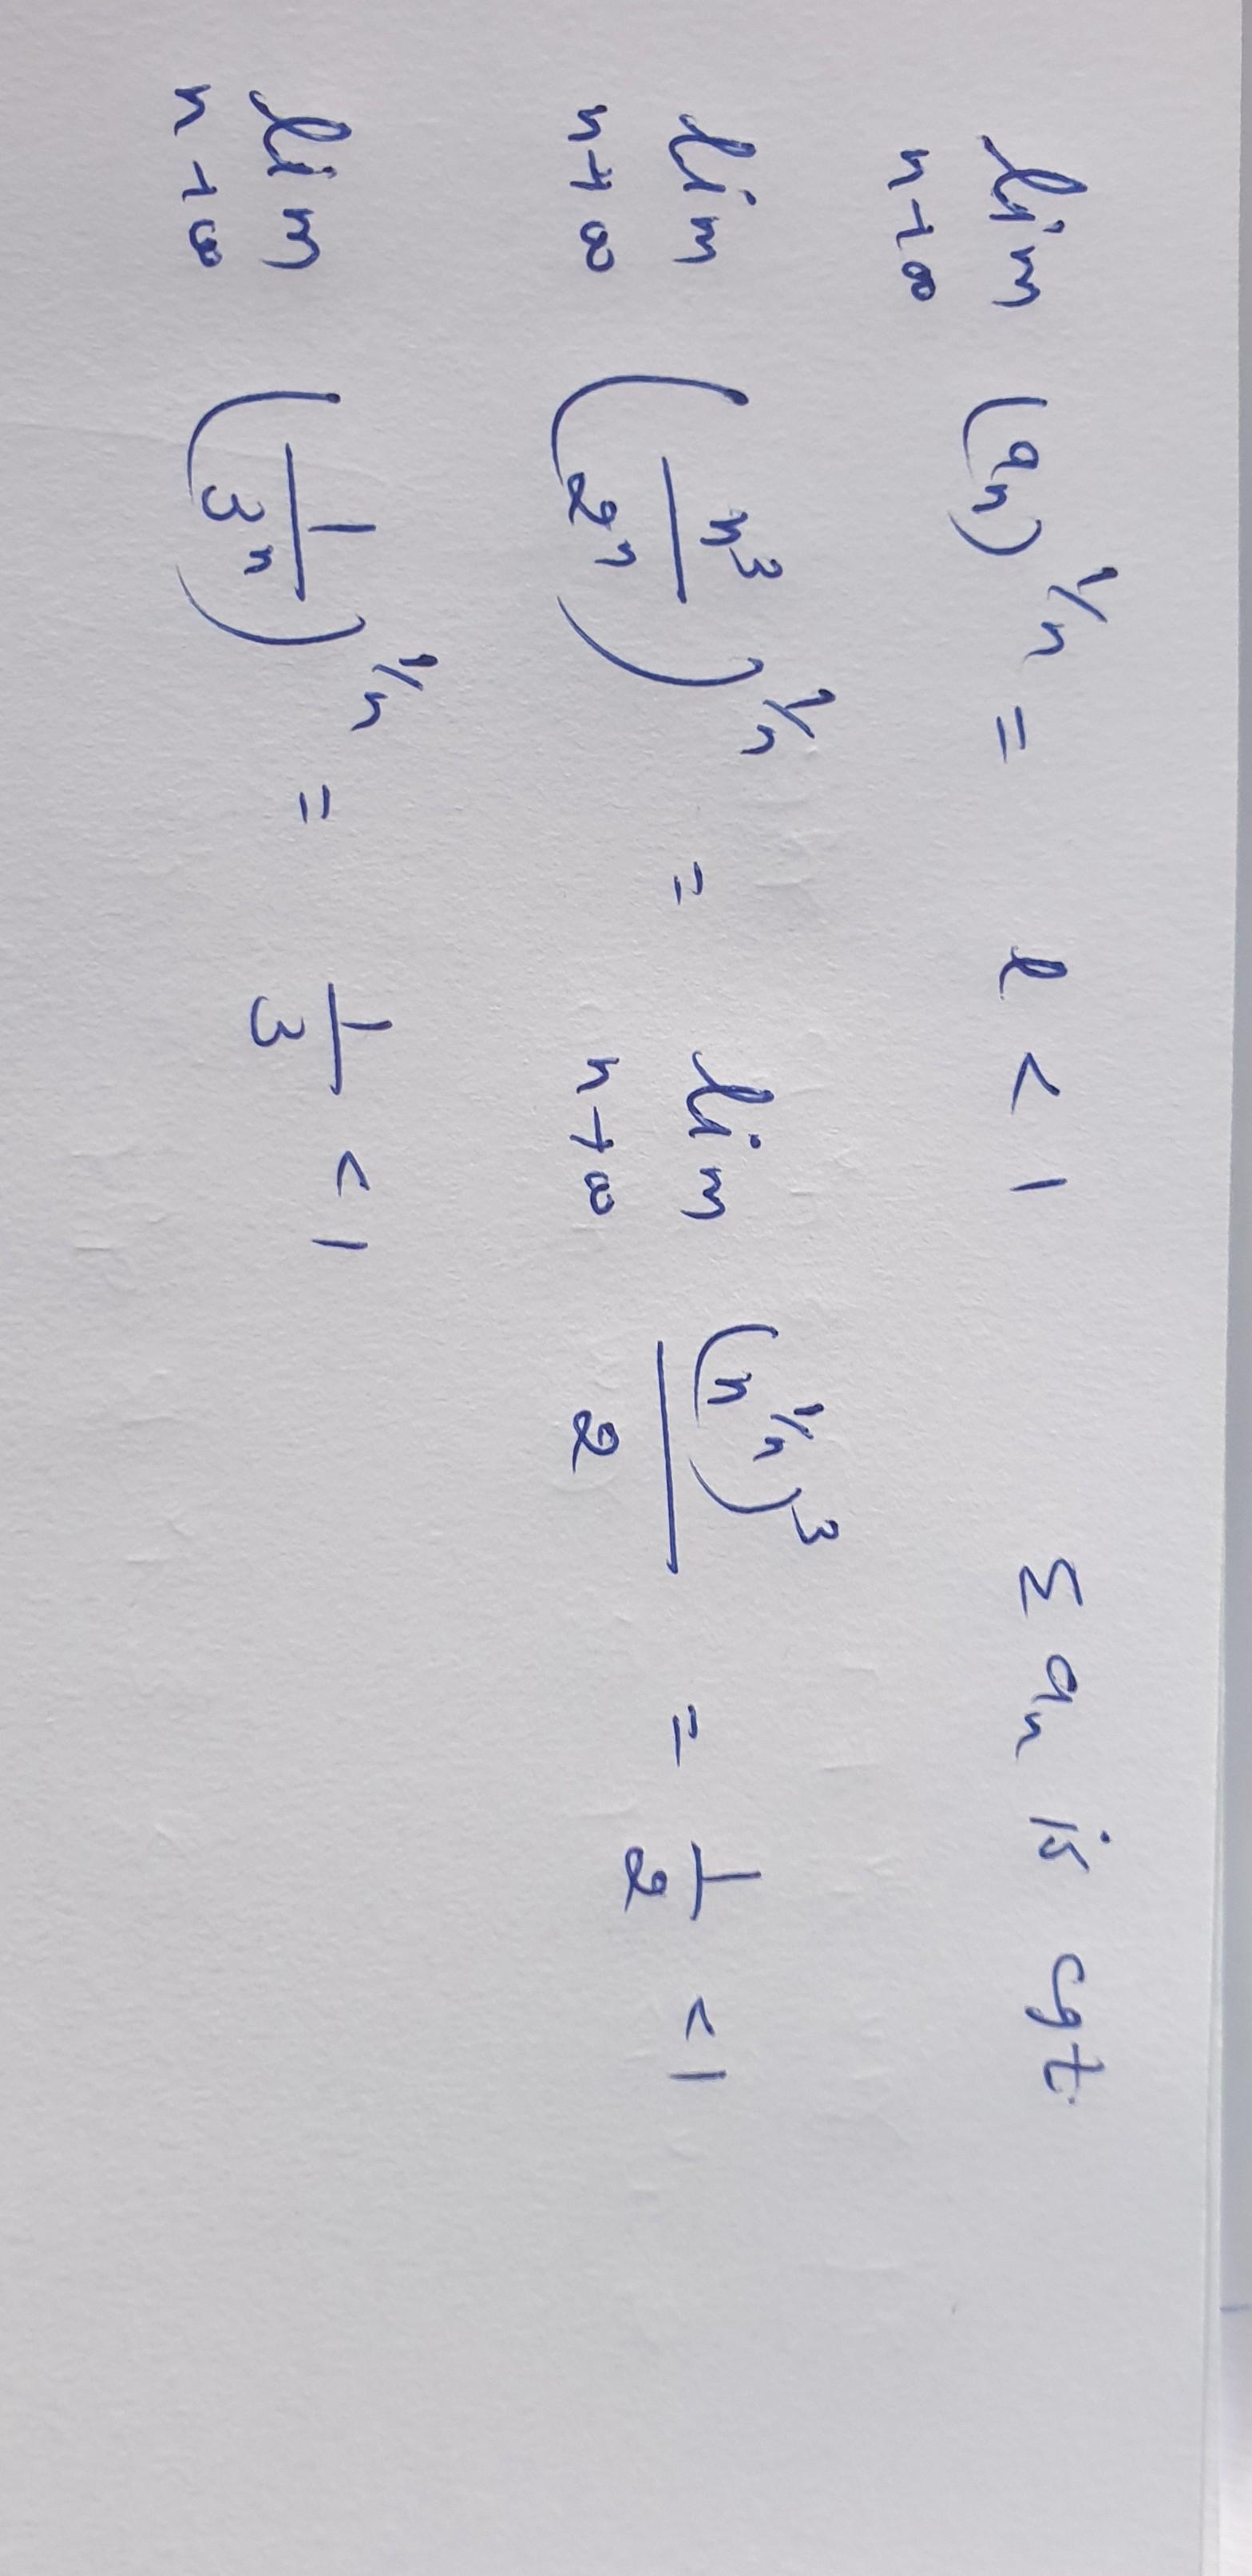 lim n→∞ (aₙ)^1/n = l < 1 Σ aₙ is cgt.
lim n→∞ (n³/2ⁿ)^1/n = lim n→∞ (n^1/n)³/2 = 1/2 < 1
lim n→∞ (1/3ⁿ)^1/n = 1/3 < 1